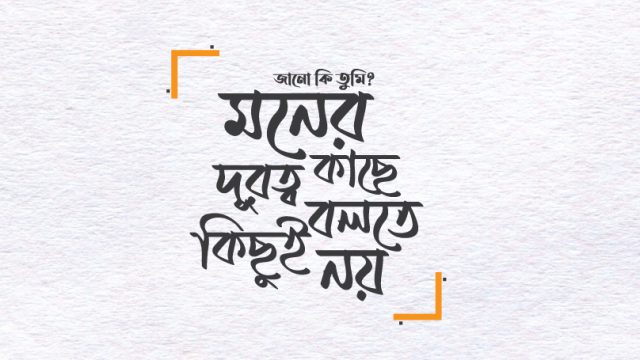 জানো কি তুমি?
মনের
কাছে
দূরত্ব
বলতে
কিছুই
নয়